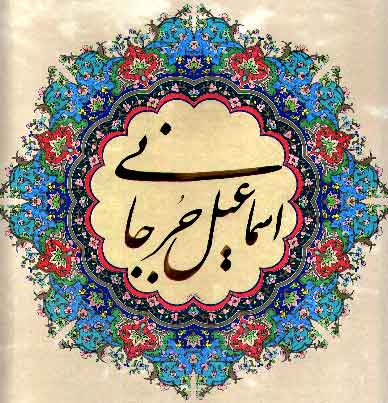 اسماعیل جُرجانی